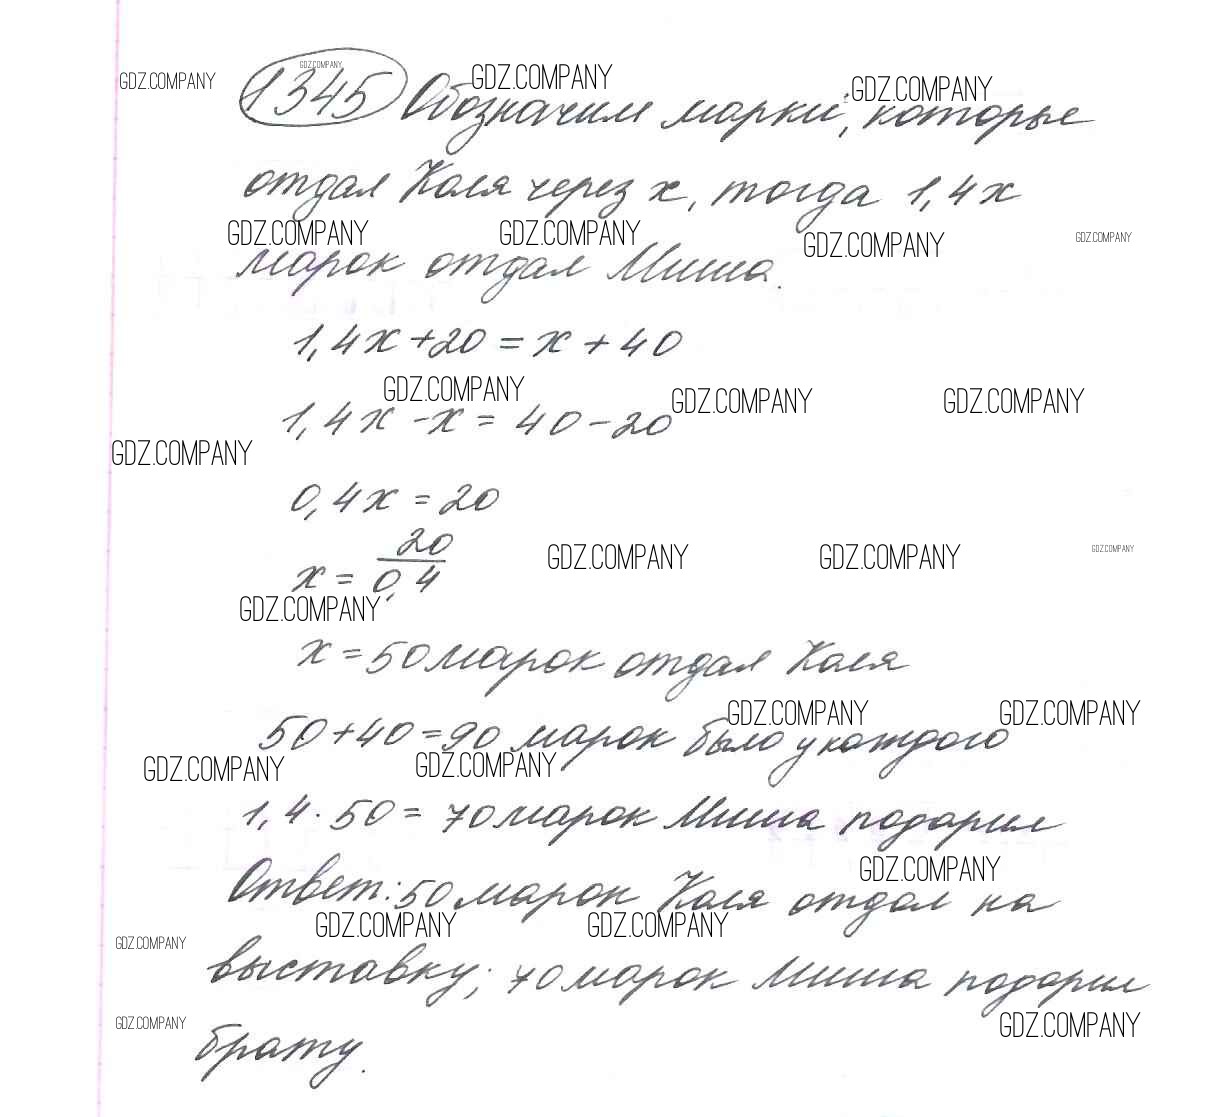 GDZ.COMPANY
1345 Обозначим марки, которые
GDZ.COMPANY GDZ.COMPANY GDZ.COMPANY
отдал Коля через x, тогда 1,4x
GDZ.COMPANY GDZ.COMPANY GDZ.COMPANY GDZ.COMPANY
марок отдал Миша.
1,4x+20=x+40
GDZ.COMPANY GDZ.COMPANY GDZ.COMPANY
1,4x-x=40-20
GDZ.COMPANY
0,4x=20
x=20/0,4
GDZ.COMPANY GDZ.COMPANY GDZ.COMPANY
GDZ.COMPANY
x=50 марок отдал Коля
GDZ.COMPANY GDZ.COMPANY
50+40=90 марок было у каждого
GDZ.COMPANY GDZ.COMPANY
1,4·50=70 марок Миша подарил
GDZ.COMPANY
Ответ: 50 марок Коля отдал на
GDZ.COMPANY GDZ.COMPANY
GDZ.COMPANY
выставку; 70 марок Миша подарил
GDZ.COMPANY GDZ.COMPANY
брату.